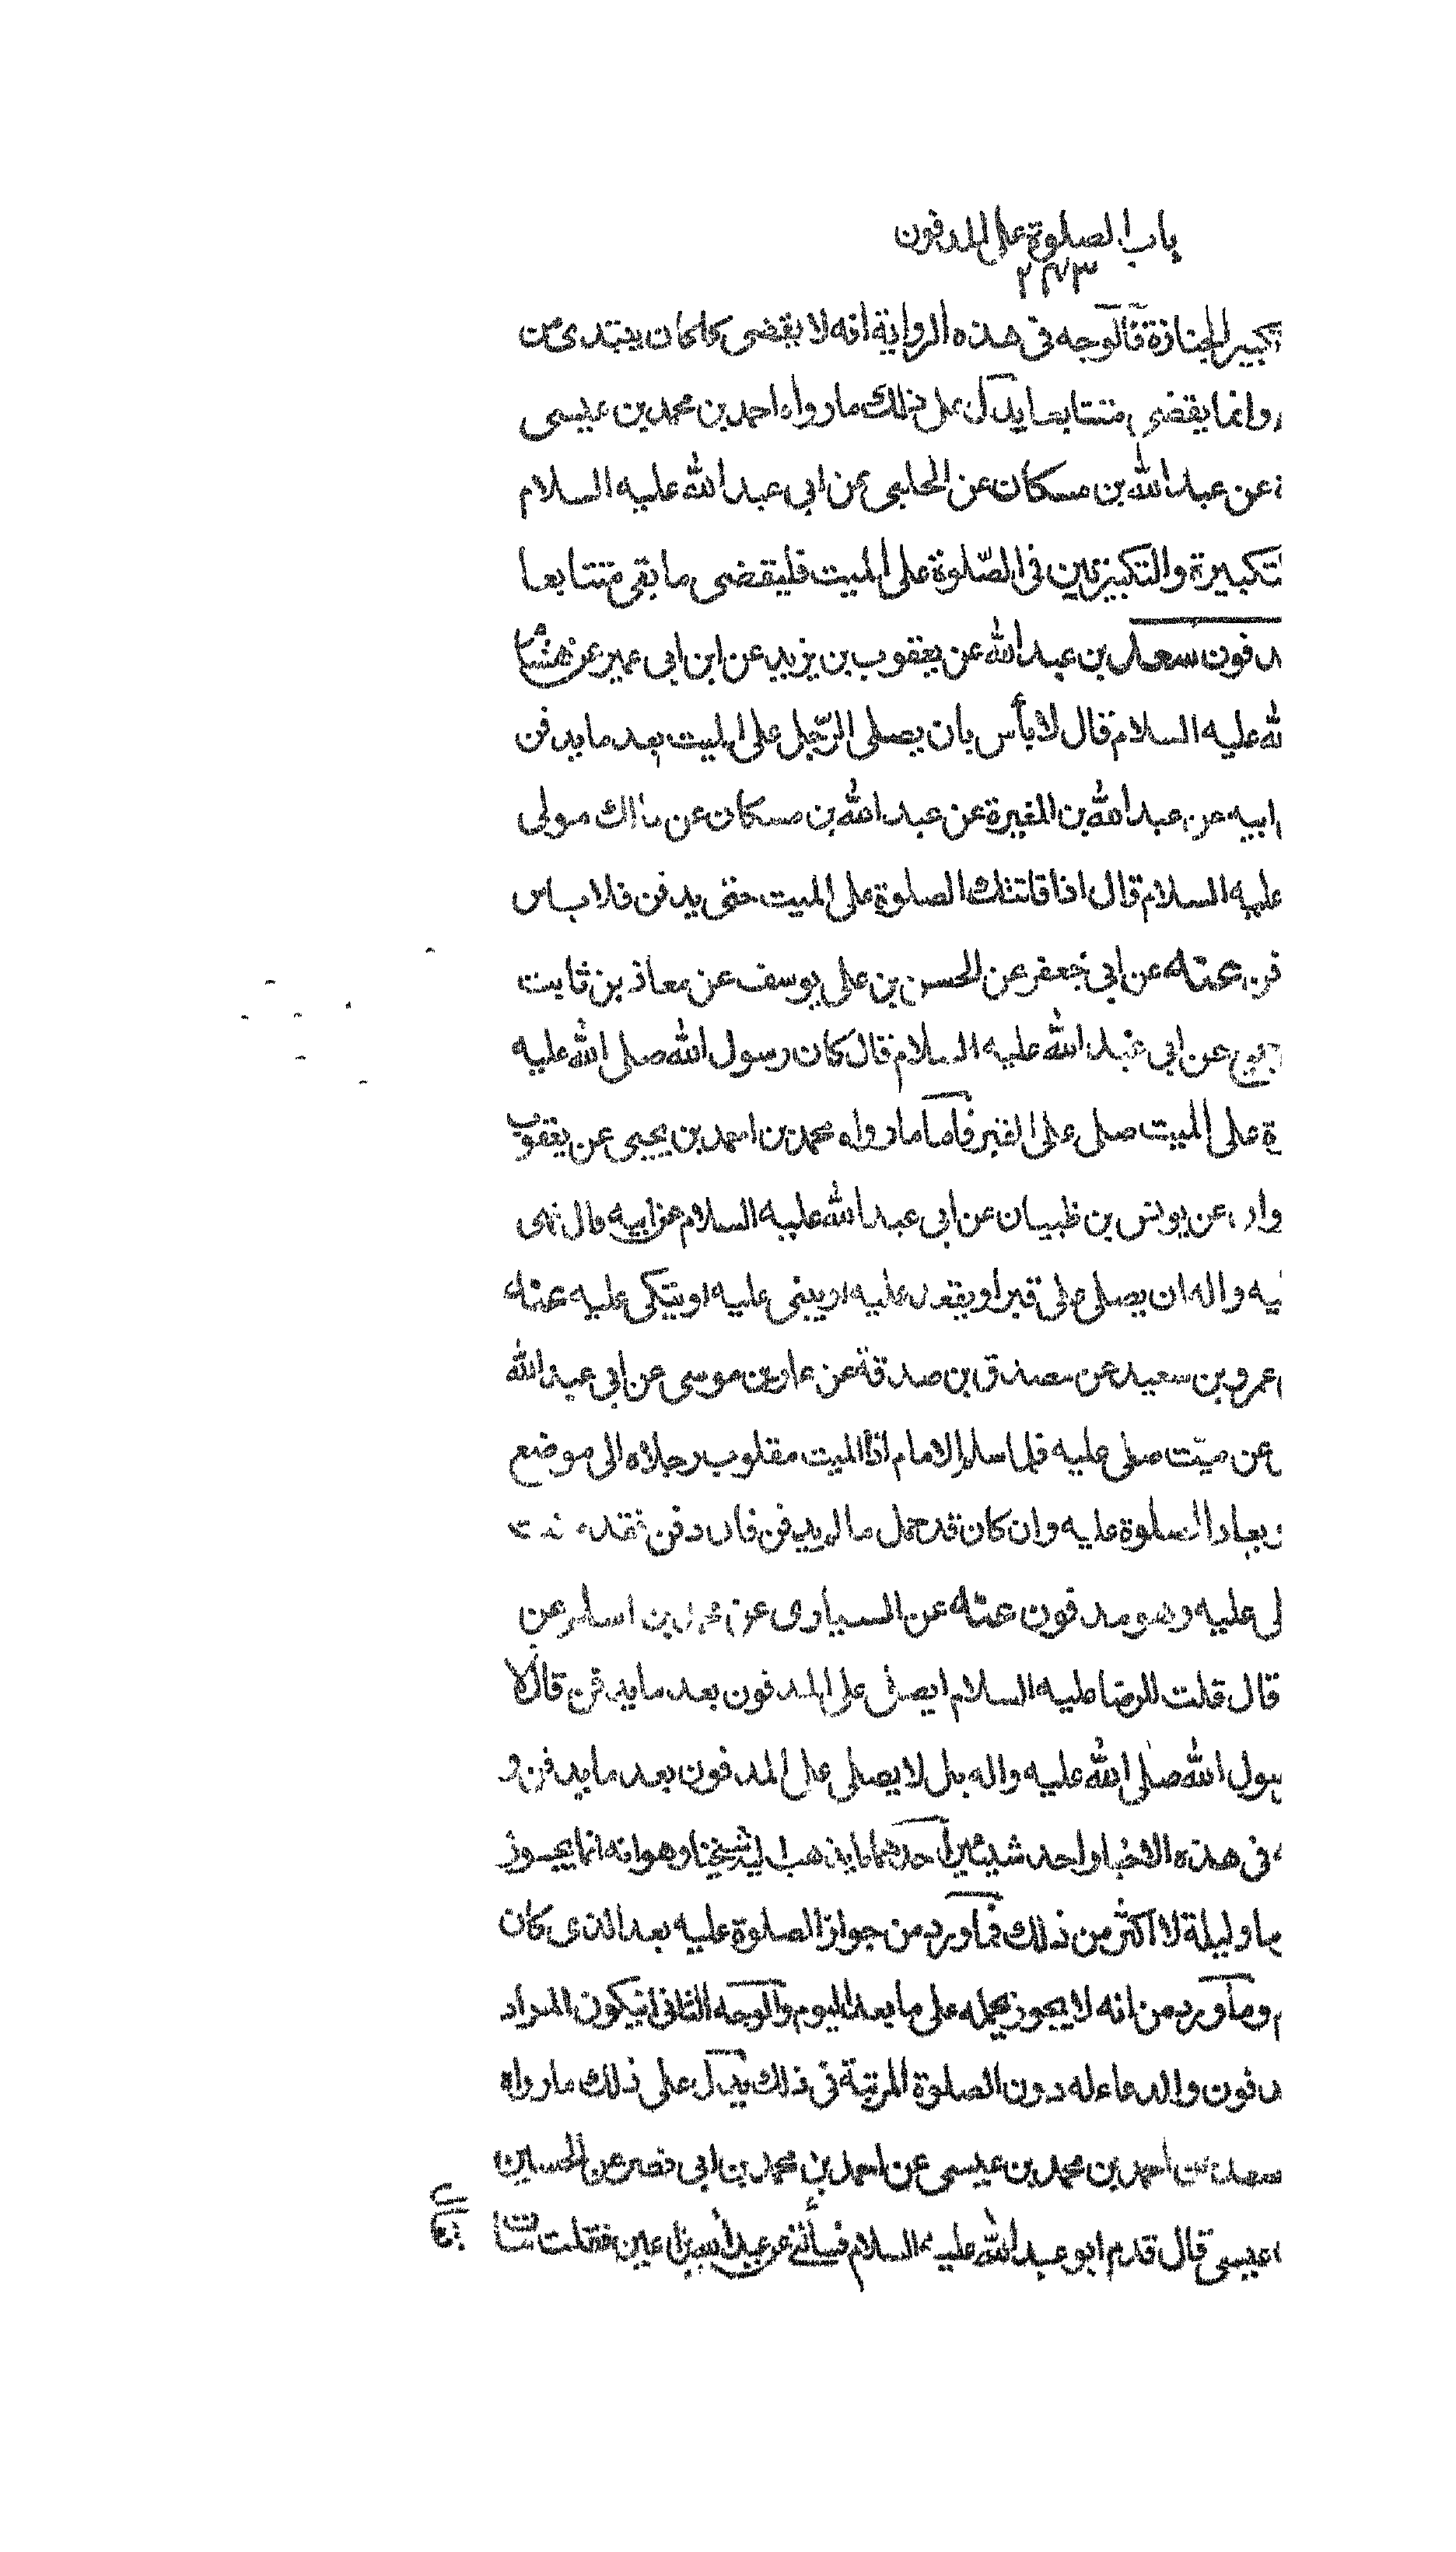 باب الصلوة على المدفون
٢٧٣
تكبير الجنازة فالوجه فى هذه الرواية انه لا يقضى كما كان يبتدى من
وانما يقضى متتابعا يدل على ذلك مارواه احمد بن محمد بن عيسى
عن عبد الله بن مسكان عن الحلبى عن ابى عبد الله عليه السلام
التكبيرة والتكبيرتين فى الصّلوة على الميت فليقضى ما بقى متتابعا
دفون سعد بن عبد الله عن يعقوب بن يزيد عن ابن ابى عمير عن هشام
لله عليه السلام قال لا بأس بان يصلى الرّجل على الميت بعد ما يدفن
ابيه عن عبد الله بن المغيرة عن عبد الله بن مسكان عن مالك مولى
عليه السلام قال اذا فاتتك الصلوة على الميت حتى يدفن فلا باس
فن عنه عن ابى جعفر عن الحسن بن على يوسف عن معاذ بن ثابت
جميع عن ابى عبد الله عليه السلام قال كان رسول الله صلى الله عليه
ة على الميت صلى على القبر فاما مارواه محمد بن احمد بن يحيى عن يعقوب
عن يونس بن ظبيان عن ابى عبد الله عليه السلام عن ابيه قال نهى
ليه واله ان يصلى على قبر او يقعد عليه او يبنى عليه او يتكى عليه عنه
عمرو بن سعيد عن مصدق بن صدقة عن عمار بن موسى عن ابى عبد الله
عن ميّت صلى عليه فلما سلم الامام اذا الميت مقلوب رجلاه الى موضع
يعاد الصلوة عليه وان كان قد حمل ما لم يدفن فان دفن فقد مضت
لى عليه وهو مدفون عنه عن السيارى عن محمد بن اسلم عن
قال قلت للرضا عليه السلام ايصلى على المدفون بعد ما يدفن قال لا
سول الله صلى الله عليه واله بل لا يصلى على المدفون بعد ما يدفن و
فى هذه الاخبار احد شيئين احدهما ما يذهب اليه شيخنا وهو انه انما يجوز
ما وليلة لا اكثر من ذلك فما ورد من جواز الصلوة عليه بعد الذى كان
وما ورد من انه لا يجوز نحمله على ما بعد اليوم والوجه الثانى ان يكون المراد
دفون والدعاء له دون الصلوة المرتبة فى ذلك يدل على ذلك مارواه
سعد عن احمد بن محمد بن عيسى عن احمد بن محمد بن ابى نصر عن الحسين
عيسى قال قدم ابو عبد الله عليه السلام فسألنى عن عبد الله بن اعين فقلت مات